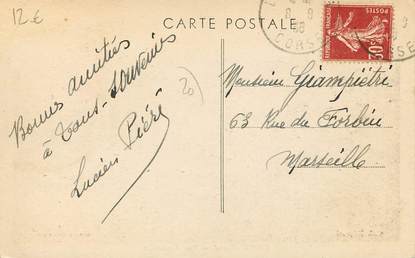 12 €
CARTE POSTALE
Bonnes amitiés
à tous - souvenirs
Lucien Piéri
20
CORSE
POSTES
REPUBLIQUE FRANCAISE
30c
Monsieur Giampiétri
63 Rue du Forbin
Marseille